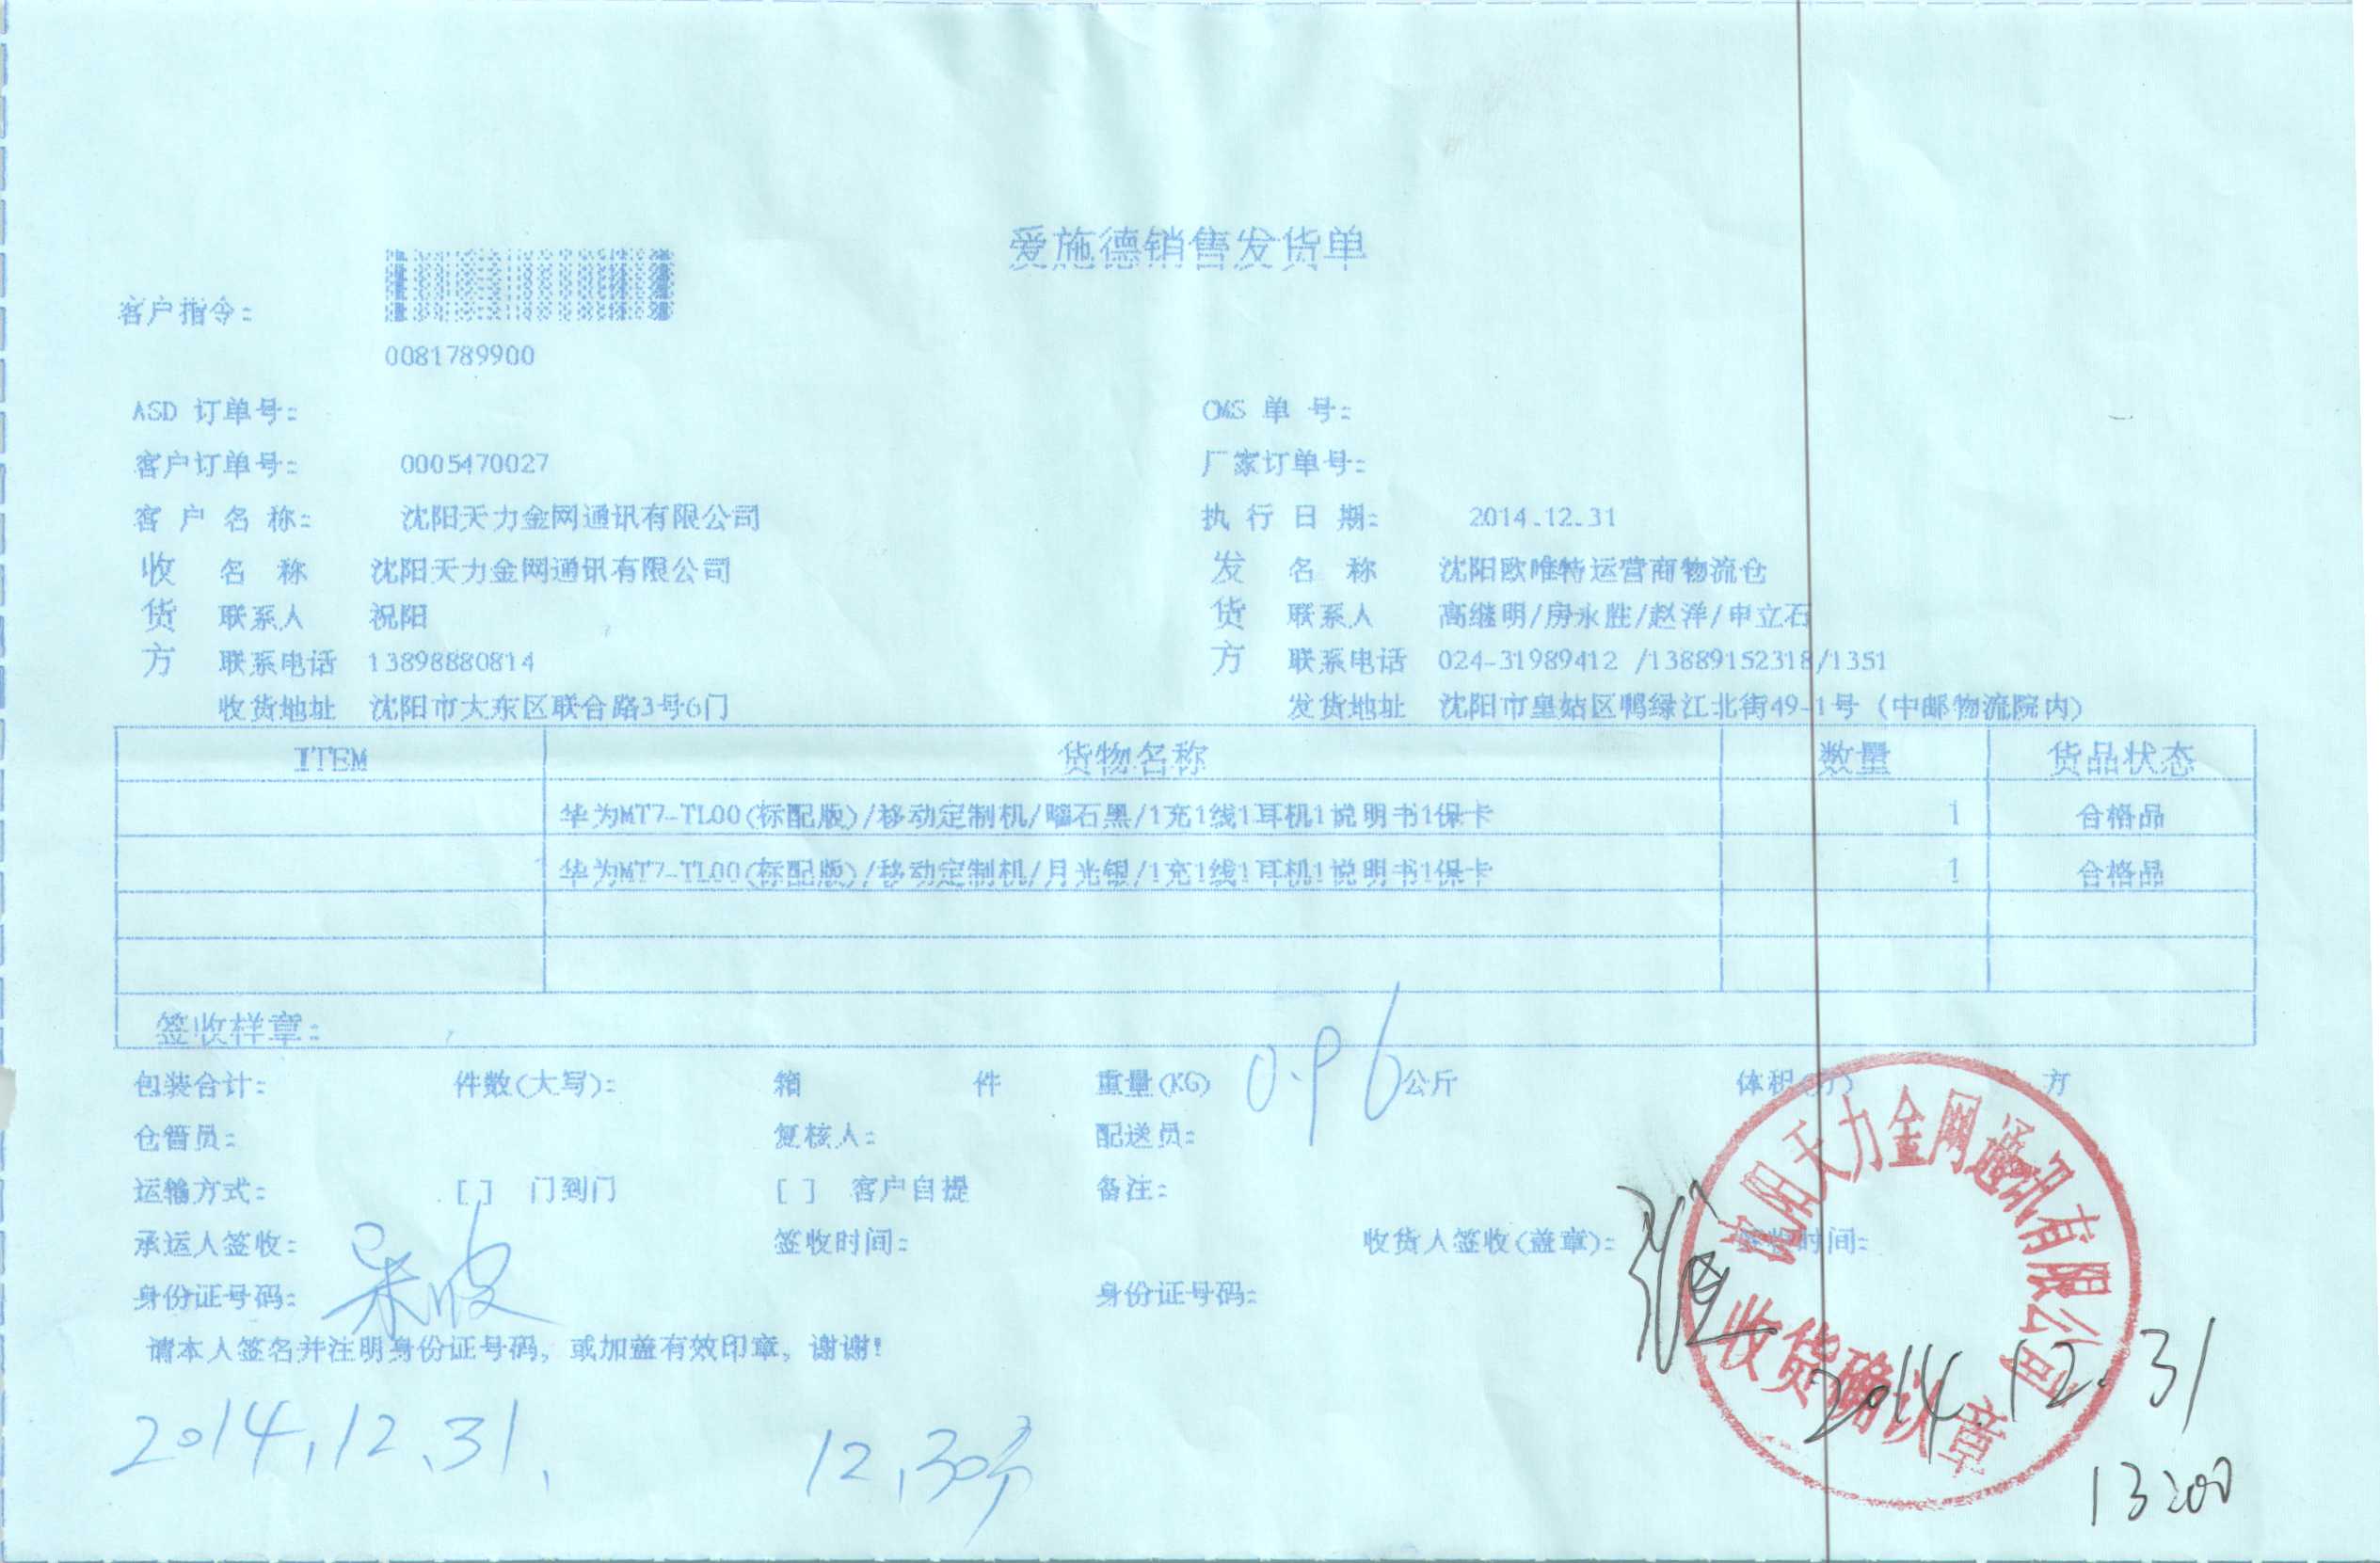 爱施德销售发货单
客户指令:
0081789900
ASD 订单号: OMS 单 号:
客户订单号: 0005470027 厂家订单号:
客 户 名 称: 沈阳天力金网通讯有限公司 执 行 日 期: 2014.12.31
收 名 称 沈阳天力金网通讯有限公司 发 名 称 沈阳欧唯特运营商物流仓
货 联系人 祝阳 货 联系人 高继明/房永胜/赵洋/申立石
方 联系电话 13898880814 方 联系电话 024-31989412 /13889152318/1351
收货地址 沈阳市大东区联合路3号6门 发货地址 沈阳市皇姑区鸭绿江北街49-1号 (中邮物流院内)
ITEM 货物名称 数量 货品状态
华为MT7-TL00(标配版)/移动定制机/曜石黑/1充1线1耳机1说明书1保卡 1 合格品
华为MT7-TL00(标配版)/移动定制机/月光银/1充1线1耳机1说明书1保卡 1 合格品
签收样章:
包装合计: 件数(大写): 箱 件 重量(KG) 0.96 公斤 体积(方) 方
仓管员: 复核人: 配送员:
运输方式: [ ] 门到门 [ ] 客户自提 备注:
承运人签收: 签收时间: 收货人签收(盖章): 签收时间:
身份证号码: 身份证号码:
请本人签名并注明身份证号码, 或加盖有效印章, 谢谢!
沈阳天力金网通讯有限公司
收货确认章
2014.12.31
2014.12.31. 12.30分